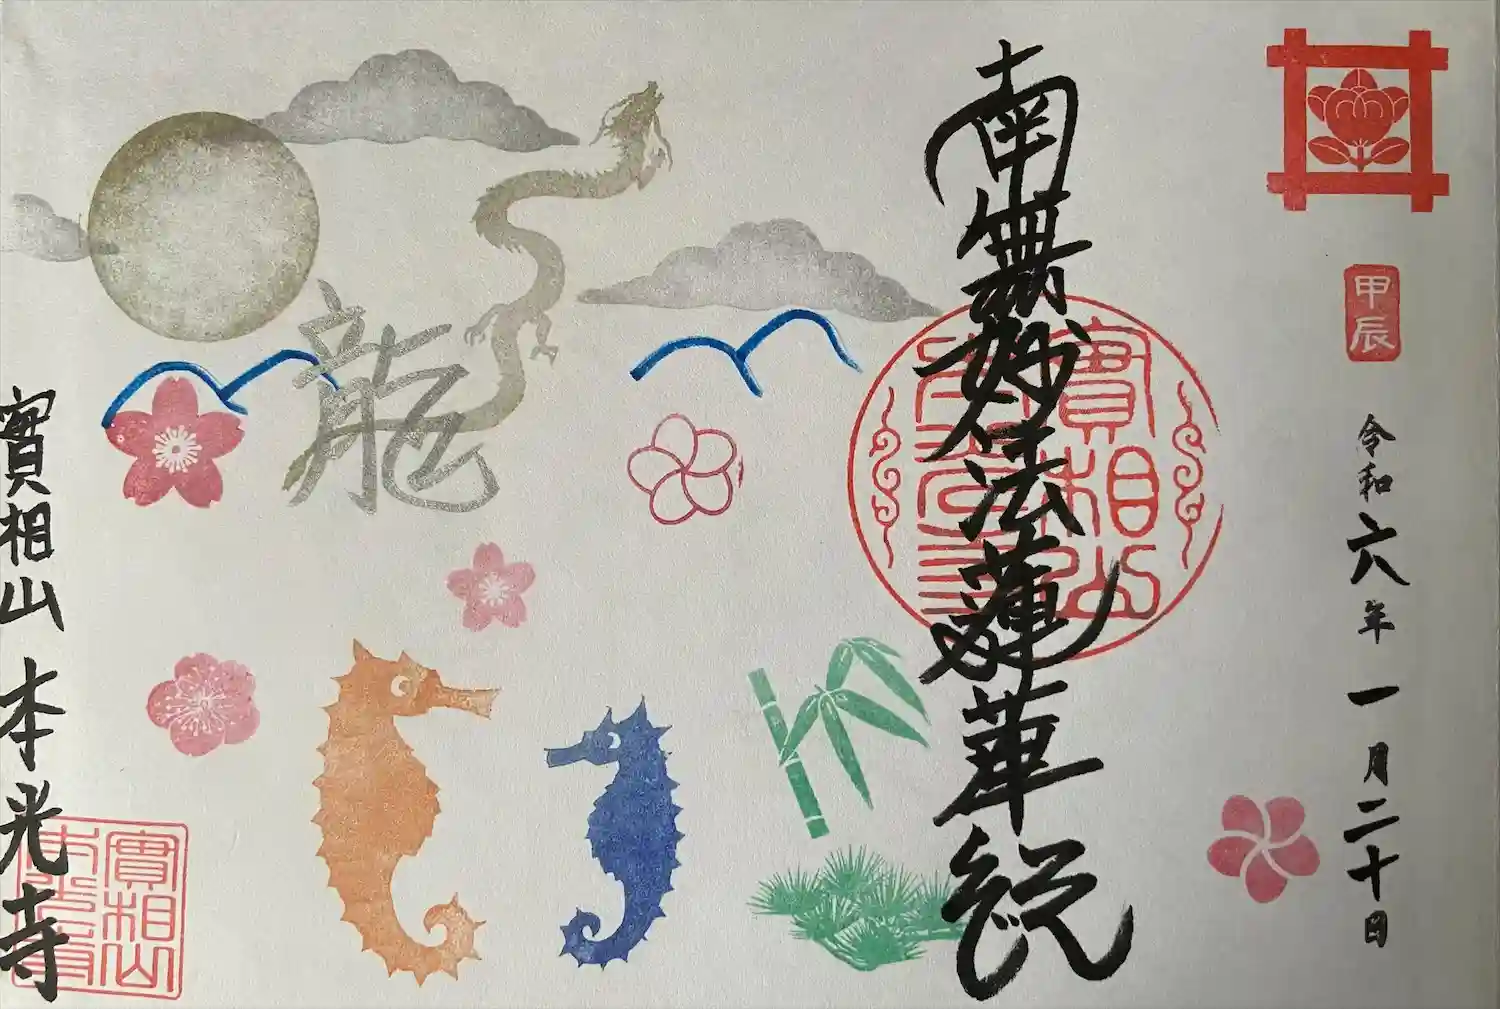 甲辰
令和六年一月二十日
南無妙法蓮華経
實相山
本光寺
龍
實相山
本光寺
實相山 本光寺